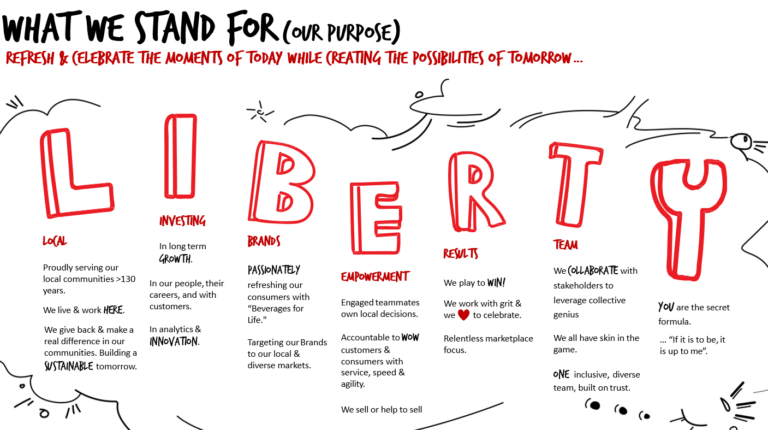 WHAT WE STAND FOR (OUR PURPOSE)
REFRESH & CELEBRATE THE MOMENTS OF TODAY WHILE CREATING THE POSSIBILITIES OF TOMORROW...
L
LOCAL
Proudly serving our
local communities >130
years.
We live & work HERE.
We give back & make a
real difference in our
communities. Building a
SUSTAINABLE tomorrow.
I
INVESTING
In long term
GROWTH.
In our people, their
careers, and with
customers.
In analytics &
INNOVATION.
B
BRANDS
PASSIONATELY
refreshing our
consumers with
“Beverages for
Life.”
Targeting our Brands
to our local &
diverse markets.
E
EMPOWERMENT
Engaged teammates
own local decisions.
Accountable to WOW
customers &
consumers with
service, speed &
agility.
We sell or help to sell
R
RESULTS
We play to WIN!
We work with grit &
we ❤ to celebrate.
Relentless marketplace
focus.
T
TEAM
We COLLABORATE with
stakeholders to
leverage collective
genius
We all have skin in the
game.
ONE inclusive, diverse
team, built on trust.
Y
YOU are the secret
formula.
... “If it is to be, it
is up to me”.